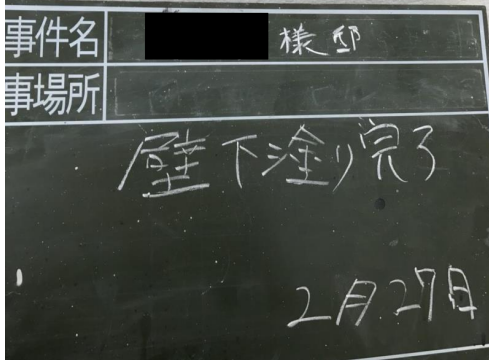 事件名 様邸
事場所
壁下塗り完了
2月27日